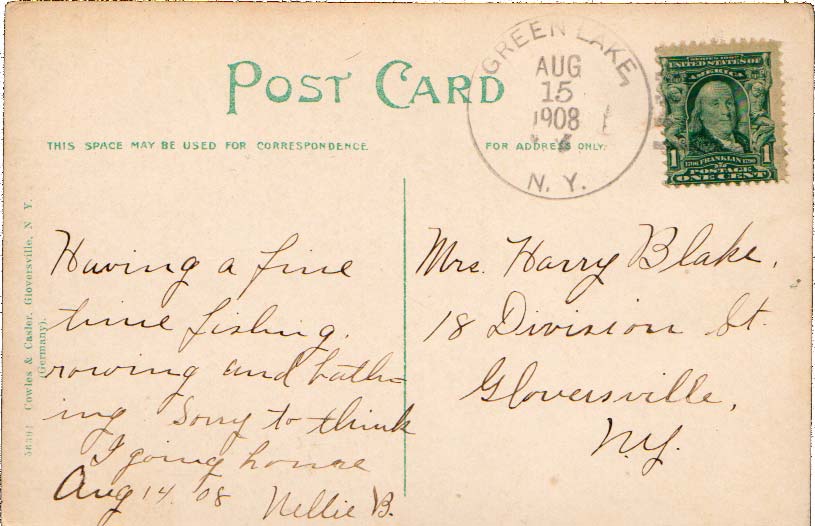 POST CARD
THIS SPACE MAY BE USED FOR CORRESPONDENCE.
FOR ADDRESS ONLY.
GREEN LAKE,
AUG
15
1908
N. Y.
SERIES 1902
UNITED STATES OF
AMERICA
1706 FRANKLIN 1790
1 1
POSTAGE
ONE CENT
Cowles & Casler, Gloversville, N Y.
(Germany).
Having a fine
time fishing.
rowing and bath-
ing Sorry to think
I going home
Aug 14. 08 Nellie B.
Mrs. Harry Blake.
18 Division St.
Gloversville,
N.Y.